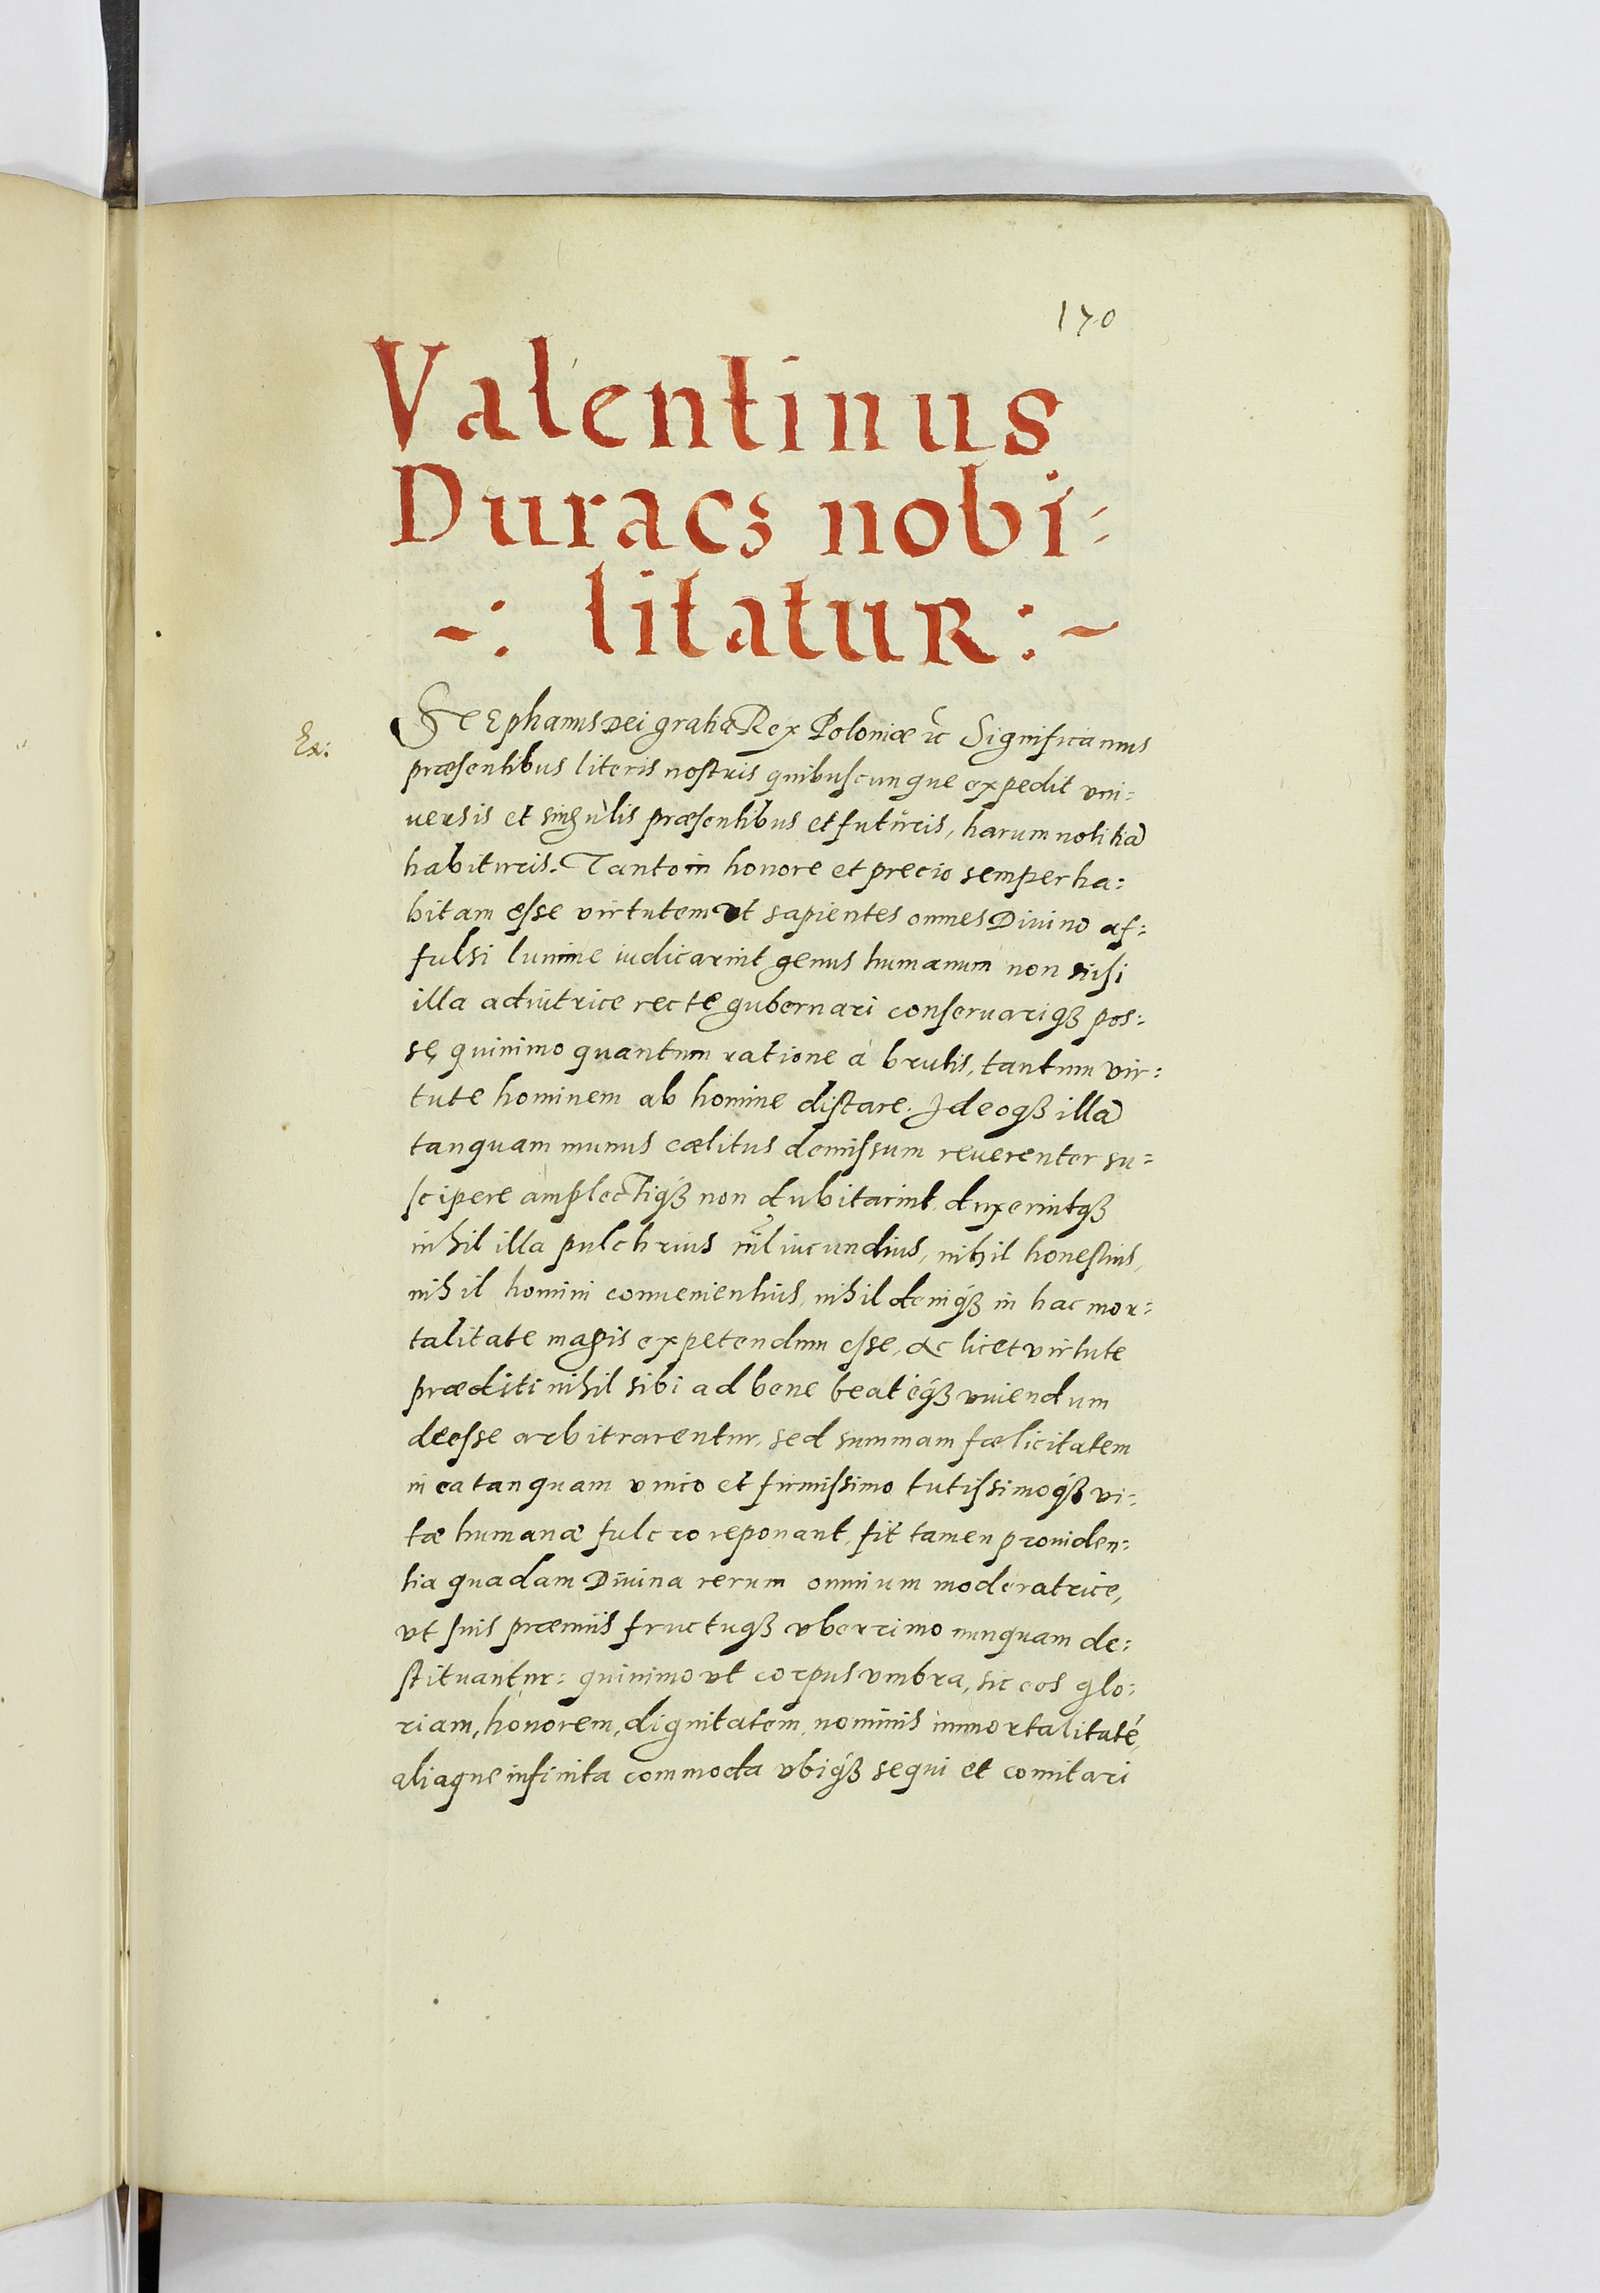 170
Valentinus
Duracz nobi-
-: litatuR :~
Ex:
STEphanus Dei gratia Rex Poloniæ etc Significamus
præsentibus literis nostris quibuscunque expedit vni=
uersis et singulis præsentibus et futuris, harum notitiã
habituris. Tanto in honore et precio semper ha=
bitam esse virtutem vt sapientes omnes Diuino af=
fulsi lumine iudicarint genus humanum non nisi
illa adiutrice recte gubernari conseruariqꝫ pos=
se, quinimo quantum ratione à brutis, tantum vir=
tute hominem ab homine distare. Ideoqꝫ illã
tanquam munus cælitus demissum reuerenter su=
scipere amplectiqꝫ non dubitarint, duxerintqꝫ
nihil illa pulchrius nil iucundius, nihil honestius,
nihil homini conuenientius, nihil deniqꝫ in hac mor=
talitate magis expetendum esse, ac licet virtute
præditi nihil sibi ad bene beateqꝫ viuendum
deesse arbitrarentur, sed summam fælicitatem
in ea tanquam vnico et firmissimo tutissimoqꝫ vi=
tæ humanæ fulcro reponant, fit tamen prouiden=
tia quadam Diuina rerum omnium moderatrice,
vt suis præmiis fructuqꝫ vberrimo nunquam de=
stituantur: quinimo vt corpus vmbra, sic eos glo=
riam, honorem, dignitatem, nominis immortalitatẽ,
aliaque infinita commoda vbiqꝫ sequi et comitari